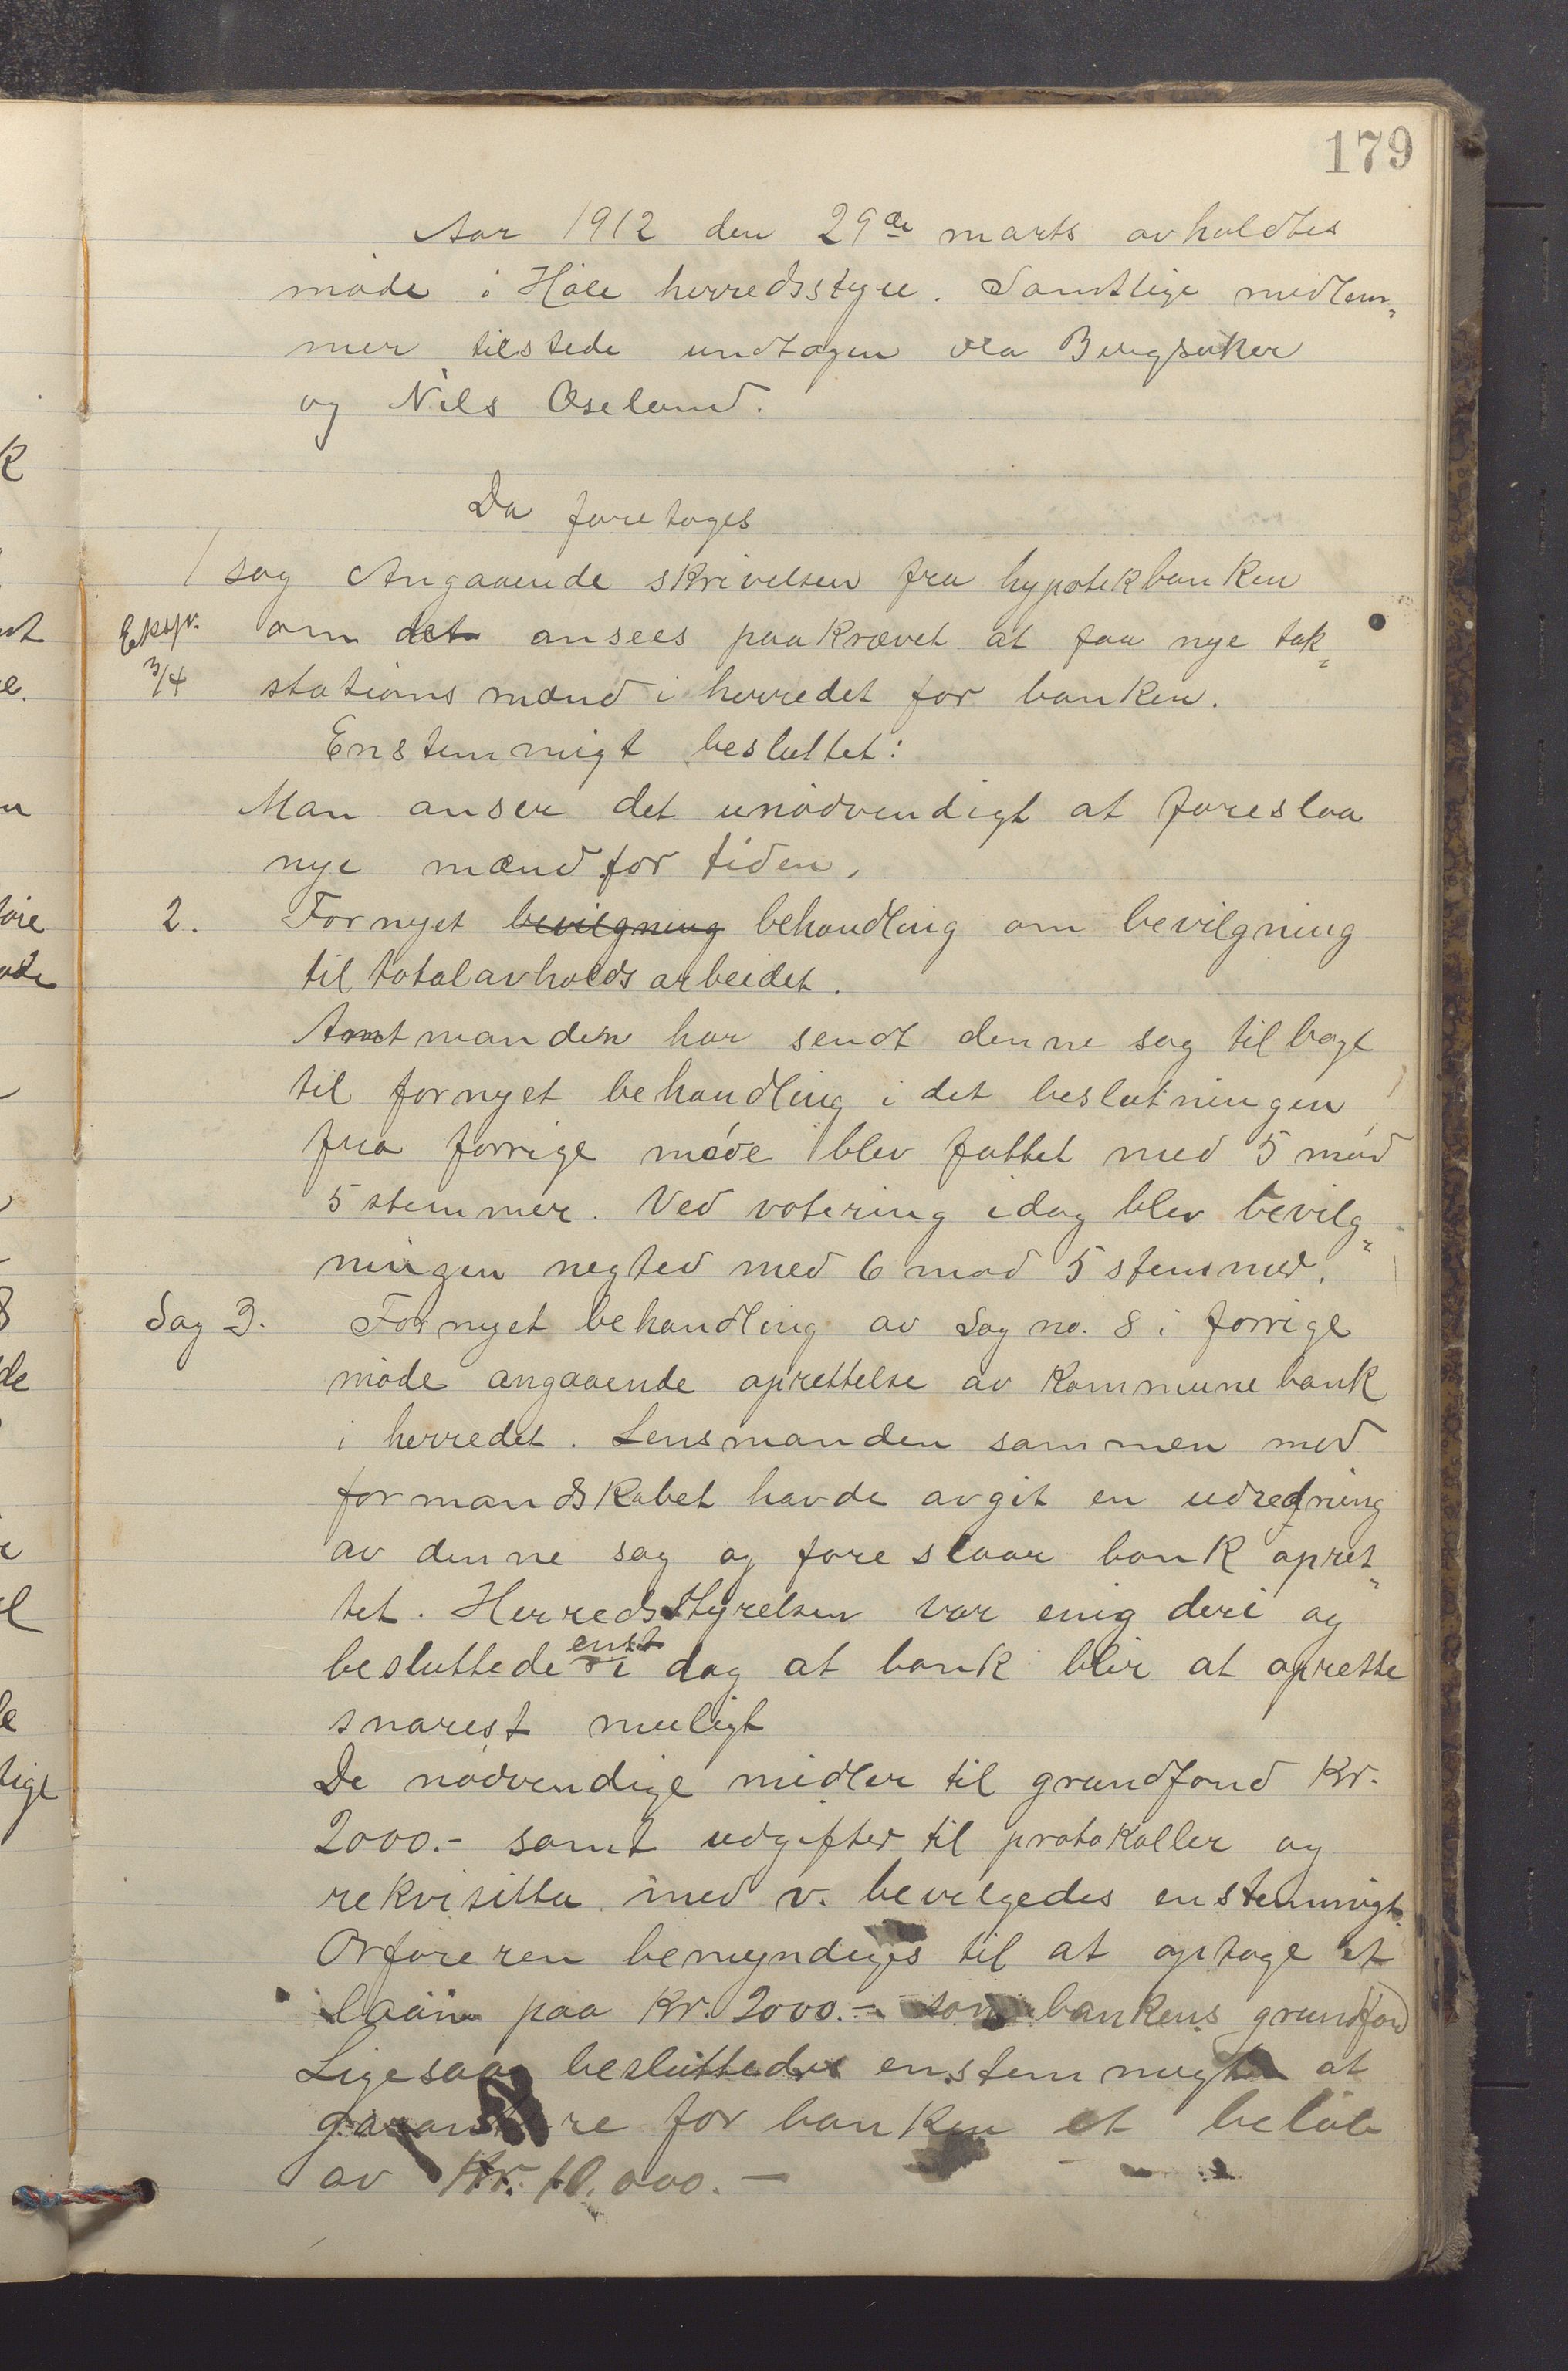 179
Aar 1912 den 29de marts avholdtes
møde i Høle herredsstyre. Samtlige medlem„
mer tilstede undtagen Ola Bergsaker
og Nils Øseland.
Da foretoges
1 sag Angaaende skrivelsen fra hypotekbanken
Eksp. om det ansees paakrævet at faa nye tak„
3/4 stationsmænd i herredet for banken.
Enstemmigt besluttet:
Man anser det unødvendigt at foreslaa
nye mænd for tiden.
2. Fornyet bevilgning behandling om bevilgning
til totalavholdsarbeidet.
Amtmanden har sendt denne sag tilbage
til fornyet behandling i det beslutningen
fra forrige møde blev fattet med 5 mod
5 stemmer. Ved votering idag blev bevilg„
ningen negted med 6 mod 5 stemmer.
Sag 3. Fornyet behandling av Sag no. 8 i forrige
møde angaaende oprettelse av Kommunebank
i herredet. Lensmanden sammen med
formandskabet havde avgit en udredning
av denne sag og foreslaar bank opret„
tet. Herredsstyrelsen var enig deri og
enst
besluttede i dag at bank blir at oprette
snarest muligt
De nødvendige midler til grundfond Kr.
2000.- samt udgifter til protokoller og
rekvisitta med v. bevilgedes enstemmigt.
Ordføreren bemyndiges til at optage et
laan paa Kr. 2000.- som bankens grundfond
Ligesaa besluttedes enstemmigt at
garantere for banken et beløb
av Kr. 10.000.-